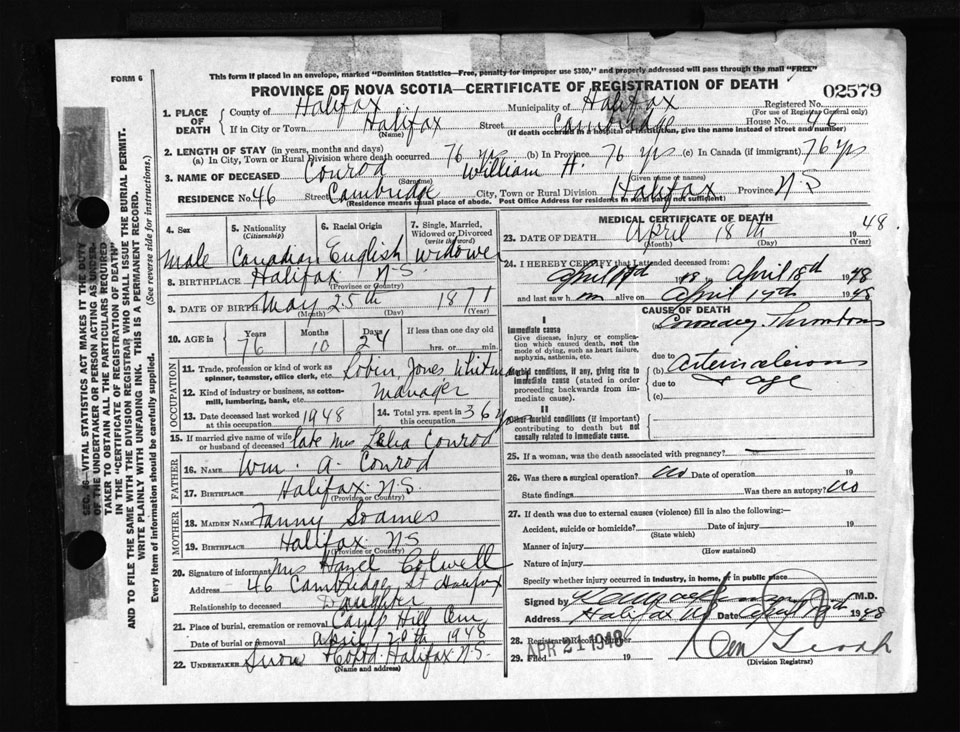 FORM 6
This form if placed in an envelope, marked "Dominion Statistics—Free, penalty for improper use $300," and properly addressed will pass through the mail "FREE"
PROVINCE OF NOVA SCOTIA—CERTIFICATE OF REGISTRATION OF DEATH
02579
1. PLACE OF DEATH
County of Halifax Municipality of Halifax Registered No.
(For use of Registrar General only)
If in City or Town Halifax Street Cambridge House No. 46
(Name) (If death occurred in a hospital or institution, give the name instead of street and number)
2. LENGTH OF STAY (in years, months and days)
(a) In City, Town or Rural Division where death occurred 76 yrs (b) In Province 76 yrs (c) In Canada (if immigrant) 76 yrs
3. NAME OF DECEASED Conrod William H.
(Surname) (Given name or names)
RESIDENCE No. 46 Street Cambridge City, Town or Rural Division Halifax Province N.S
(Residence means usual place of abode. Post Office Address for residents in rural parts not sufficient)
4. Sex
5. Nationality (Citizenship)
6. Racial Origin
7. Single, Married, Widowed or Divorced (write the word)
male Canadian English widower
8. BIRTHPLACE Halifax N.S.
(Province or Country)
9. DATE OF BIRTH May 25th 1871
(Month) (Day) (Year)
10. AGE in
Years Months Days If less than one day old
76 10 24 hrs. or min.
OCCUPATION
11. Trade, profession or kind of work as spinner, teamster, office clerk, etc. Robin Jones Whitman
12. Kind of industry or business, as cotton-mill, lumbering, bank, etc. manager
13. Date deceased last worked at this occupation 1948
14. Total yrs. spent in this occupation 36 yrs
15. If married give name of wife or husband of deceased late Mrs Lelia Conrod
FATHER
16. NAME Wm. A. Conrod
17. BIRTHPLACE Halifax N.S.
(Province or Country)
MOTHER
18. MAIDEN NAME Fanny Soames
19. BIRTHPLACE Halifax NS
(Province or Country)
20. Signature of informant Mrs Hazel Colwell
Address 46 Cambridge St Halifax
Relationship to deceased Daughter
21. Place of burial, cremation or removal Camp Hill Cem
Date of burial or removal April 20th 1948
22. UNDERTAKER Snow & Co Ltd. Halifax N.S.
(Name and address)
MEDICAL CERTIFICATE OF DEATH
23. DATE OF DEATH April 18th 1948
(Month) (Day) (Year)
24. I HEREBY CERTIFY that I attended deceased from:
48 to April 18th 1948
and last saw him alive on April 17th 1948
CAUSE OF DEATH
I
Immediate cause
Give disease, injury or complication which caused death, not the mode of dying, such as heart failure, asphyxia, asthenia, etc.
(a) Coronary Thrombosis
due to
Morbid conditions, if any, giving rise to immediate cause (stated in order proceeding backwards from immediate cause).
(b) Arteriosclerosis
due to & age
(c)
II
Other morbid conditions (if important) contributing to death but not causally related to immediate cause.
25. If a woman, was the death associated with pregnancy?
26. Was there a surgical operation? no Date of operation 19
State findings Was there an autopsy? no
27. If death was due to external causes (violence) fill in also the following:—
Accident, suicide or homicide? Date of injury 19
(State which)
Manner of injury
(How sustained)
Nature of injury
Specify whether injury occurred in industry, in home, or in public place
Signed by M.D.
Address Halifax NS Date April 1948
28. Registrar's Record Number
APR 21 1948
29. Filed 19
(Division Registrar)
SEC. 46—VITAL STATISTICS ACT MAKES IT THE DUTY
OF THE UNDERTAKER OR PERSON ACTING AS UNDERTAKER TO OBTAIN ALL THE PARTICULARS REQUIRED
IN THE "CERTIFICATE OF REGISTRATION OF DEATH"
AND TO FILE THE SAME WITH THE DIVISION REGISTRAR WHO SHALL ISSUE THE BURIAL PERMIT.
WRITE PLAINLY WITH UNFADING INK. THIS IS A PERMANENT RECORD.
Every item of information should be carefully supplied. (See reverse side for instructions.)